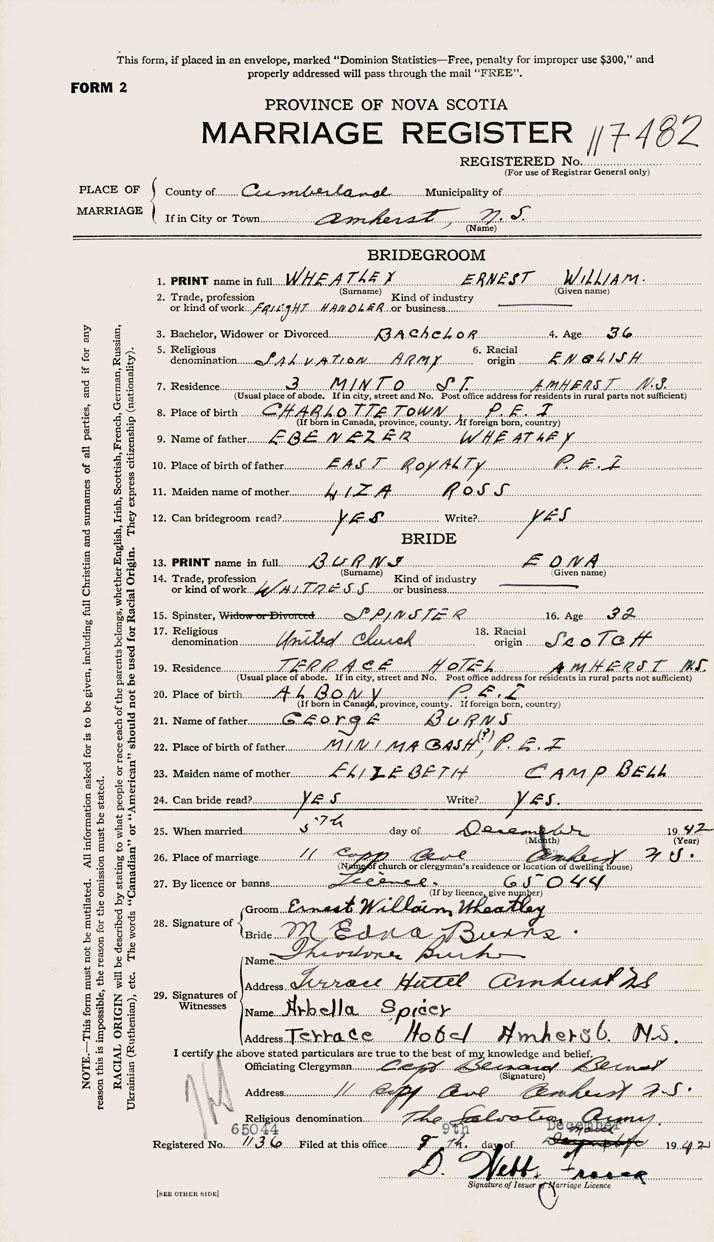 This form, if placed in an envelope, marked "Dominion Statistics—Free, penalty for improper use $300," and
properly addressed will pass through the mail "FREE".
FORM 2
PROVINCE OF NOVA SCOTIA
MARRIAGE REGISTER 117482
REGISTERED No.
(For use of Registrar General only)
PLACE OF MARRIAGE
County of Cumberland Municipality of
If in City or Town Amherst, N.S.
(Name)
BRIDEGROOM
1. PRINT name in full WHEATLEY ERNEST WILLIAM.
(Surname) (Given name)
2. Trade, profession or kind of work FREIGHT HANDLER Kind of industry or business
3. Bachelor, Widower or Divorced BACHELOR 4. Age 36
5. Religious denomination SALVATION ARMY 6. Racial origin ENGLISH
7. Residence 3 MINTO ST. AMHERST N.S.
(Usual place of abode. If in city, street and No. Post office address for residents in rural parts not sufficient)
8. Place of birth CHARLOTTETOWN P.E.I
(If born in Canada, province, county. If foreign born, country)
9. Name of father EBENEZER WHEATLEY
10. Place of birth of father EAST ROYALTY P.E.I
11. Maiden name of mother LIZA ROSS
12. Can bridegroom read? YES Write? YES
BRIDE
13. PRINT name in full BURNS EDNA
(Surname) (Given name)
14. Trade, profession or kind of work WAITRESS Kind of industry or business
15. Spinster, Widow or Divorced SPINSTER 16. Age 32
17. Religious denomination United Church 18. Racial origin SCOTCH
19. Residence TERRACE HOTEL AMHERST N.S.
(Usual place of abode. If in city, street and No. Post office address for residents in rural parts not sufficient)
20. Place of birth ALBONY P.E.I
(If born in Canada, province, county. If foreign born, country)
21. Name of father GEORGE BURNS
22. Place of birth of father MINIMAGASH (?), P.E.I
23. Maiden name of mother ELIZEBETH CAMPBELL
24. Can bride read? YES Write? YES.
25. When married 5th day of December 1942
(Month) (Year)
26. Place of marriage 11 Copp Ave Amherst N.S.
(Name of church or clergyman's residence or location of dwelling house)
27. By licence or banns Licence. 65044
(If by licence, give number)
28. Signature of
Groom Ernest William Wheatley
Bride M Edna Burns.
29. Signatures of Witnesses
Name Theodore
Address Terrace Hotel Amherst NS
Name Arbella Spicer
Address Terrace Hotel Amherst. N.S.
I certify the above stated particulars are true to the best of my knowledge and belief.
Officiating Clergyman Capt Bernard
(Signature)
Address 11 Copp Ave Amherst N.S.
Religious denomination The Salvation Army.
65044 9th December
Registered No. 1136 Filed at this office 8th. day of 1942
D. Webb
Signature of Issuer of Marriage Licence
[SEE OTHER SIDE]
NOTE.—This form must not be mutilated. All information asked for is to be given, including full Christian and surnames of all parties, and if for any
reason this is impossible, the reason for the omission must be stated.
RACIAL ORIGIN will be described by stating to what people or race each of the parents belongs, whether English, Irish, Scottish, French, German, Russian,
Ukrainian (Ruthenian), etc. The words "Canadian" or "American" should not be used for Racial Origin. They express citizenship (nationality).